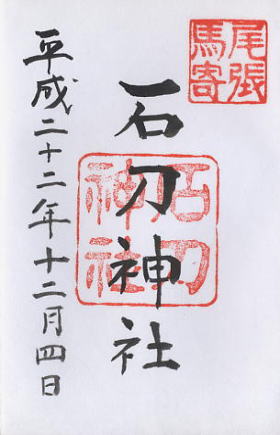 尾張
馬寄
石刀神社
石刀
神社
平成二十二年十二月四日